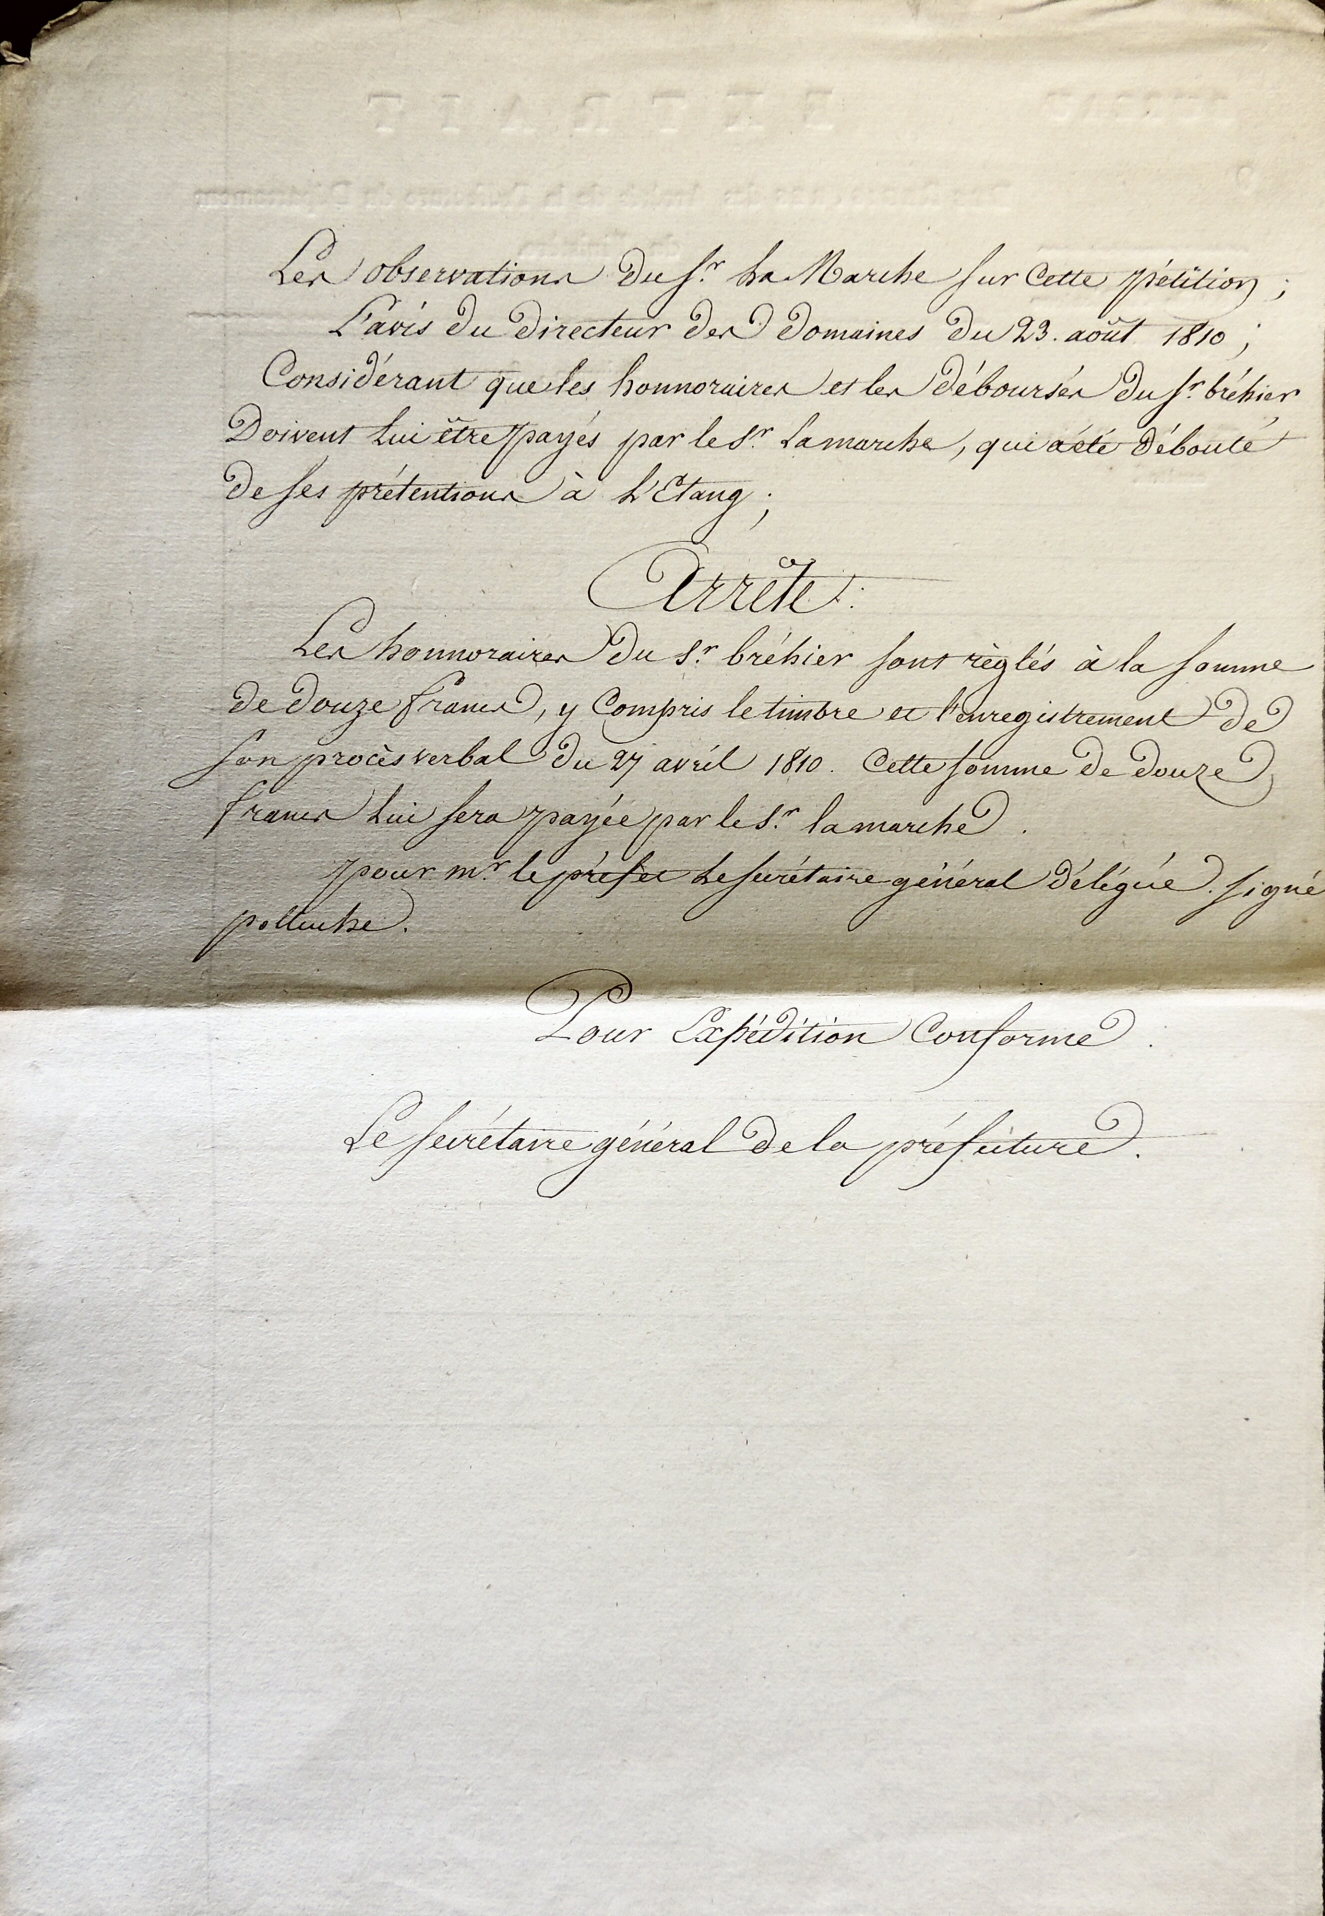 Les observations du Sr. La Marche sur cette pétition ;
L'avis du directeur des domaines du 23. août 1810 ;
Considérant que les honnoraires et les déboursés du Sr. bréhier
Doivent Lui être payés par le Sr. Lamarche, qui a été débouté
de ses prétentions à L'Etang ;
Arrête :
Les honnoraires du Sr. bréhier sont règlés à la somme
de douze francs, y compris le timbre et l'enregistrement de
son procès verbal du 27 avril 1810. Cette somme de douze
francs Lui sera payée par le Sr. lamarche.
pour mr. le préfet Le secrétaire général délégué. signé
polluche.
Pour Expédition Conforme.
Le secrétaire général de la préfecture.